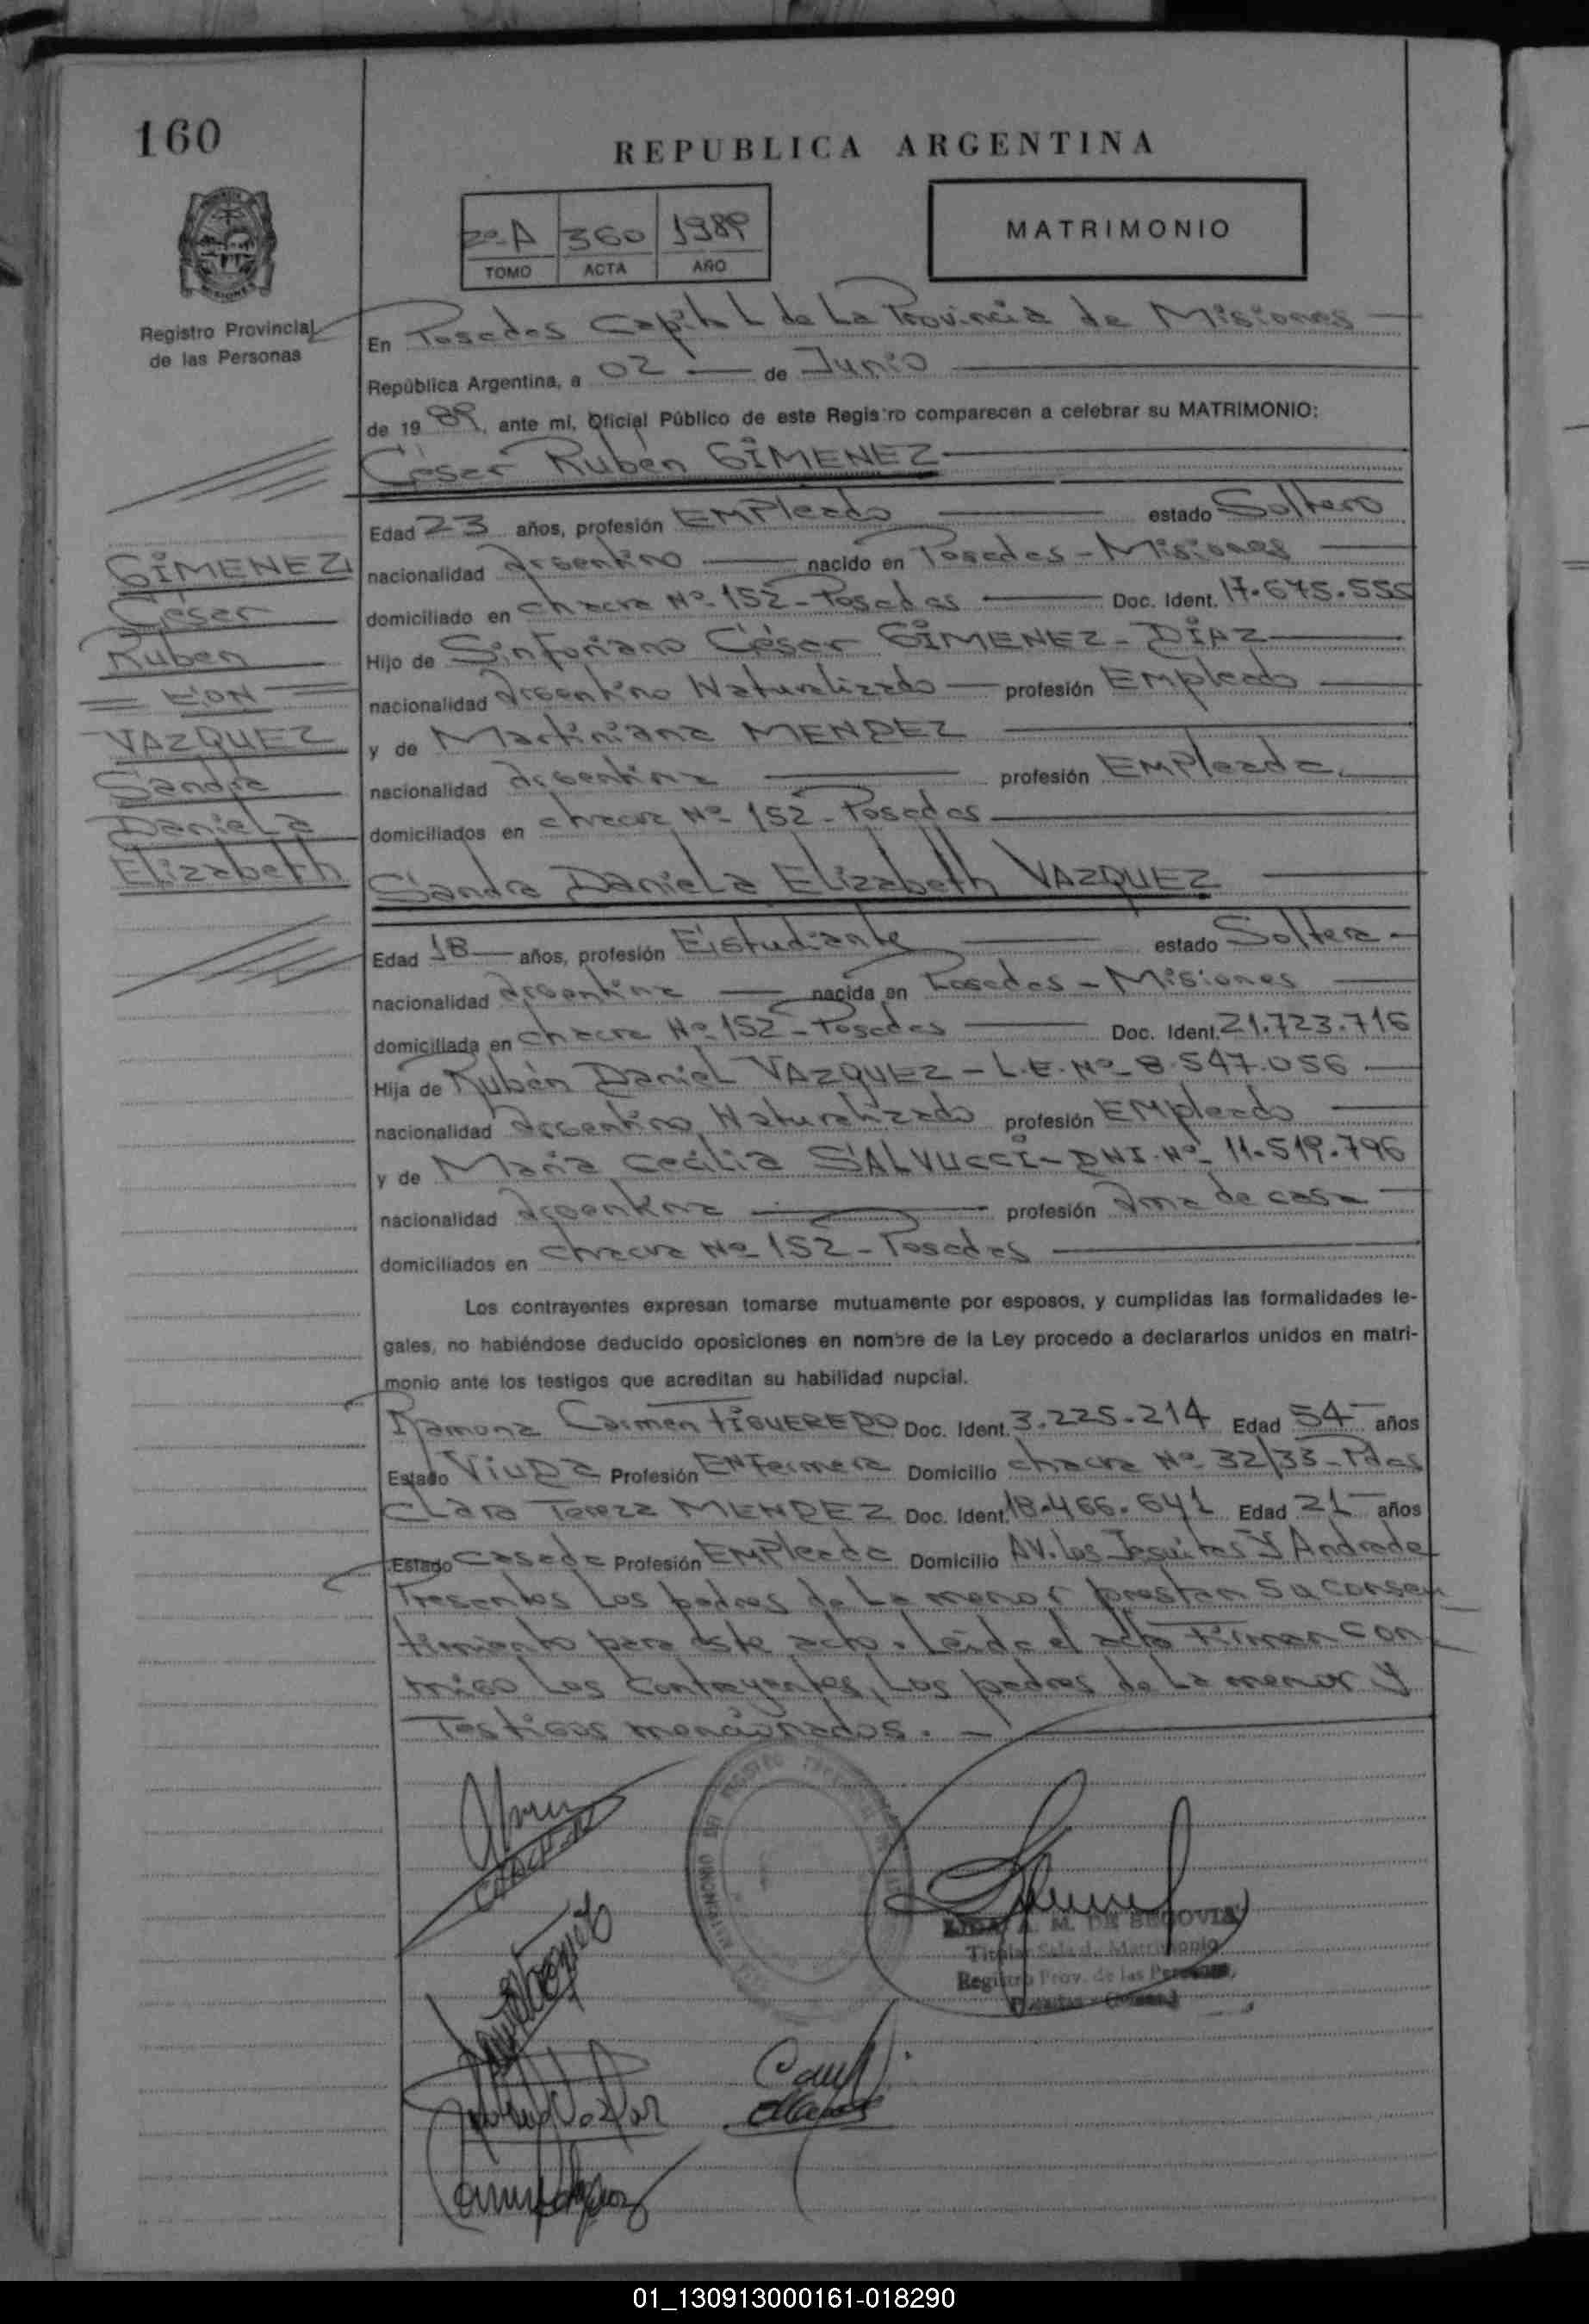 160
REPUBLICA ARGENTINA
2º-A 360 1989
TOMO ACTA AÑO
MATRIMONIO
Registro Provincial
de las Personas
En Posadas Capital de La Provincia de Misiones
República Argentina, a 02 de Junio
de 19 89, ante mi, Oficial Público de este Registro comparecen a celebrar su MATRIMONIO:
César Rubén GIMENEZ
Edad 23 años, profesión EMPleado estado Soltero
nacionalidad Argentino nacido en Posadas - Misiones
domiciliado en chacra Nº 152 - Posadas Doc. Ident. 17.675.555
Hijo de Sinforiano César GIMENEZ - DÍAZ
nacionalidad Argentino Naturalizado profesión EMpleado
y de Martiniana MENDEZ
nacionalidad Argentina profesión EMPleada
domiciliados en chacra Nº 152 - Posadas
GIMENEZ
César
Ruben
CON
VAZQUEZ
Sandra
Daniela
Elizabeth
Sandra Daniela Elizabeth VAZQUEZ
Edad 18 años, profesión Estudiante estado Soltera
nacionalidad Argentina nacida en Posadas - Misiones
domiciliada en chacra Nº 152 - Posadas Doc. Ident. 21.723.716
Hija de Rubén Daniel VAZQUEZ - L.E. Nº 8.547.056
nacionalidad Argentino Naturalizado profesión EMpleado
y de Maria Cecilia SALVUCCI - DNI. Nº 11.519.796
nacionalidad Argentina profesión Ama de casa
domiciliados en chacra Nº 152 - Posadas
Los contrayentes expresan tomarse mutuamente por esposos, y cumplidas las formalidades le-
gales, no habiéndose deducido oposiciones en nombre de la Ley procedo a declararlos unidos en matri-
monio ante los testigos que acreditan su habilidad nupcial.
Ramona Carmen FIGUEREDO Doc. Ident. 3.225.214 Edad 54 años
Estado Viuda Profesión ENfermera Domicilio chacra Nº 32/33 - Pdas
Clara Tereza MENDEZ Doc. Ident. 18.466.641 Edad 21 años
Estado casada Profesión EMPleada Domicilio AV. Los Jesuitas Y Andrade
Presentes Los padres de La menor prestan su consen
timiento para este acto. Leída el acta Firman con
migo Los contrayentes, Los padres de La menor Y
Testigos mencionados. -
A. M. DE SEGOVIA
Titular Sala de Matrimonio
Registro Prov. de las Personas
01_130913000161-018290